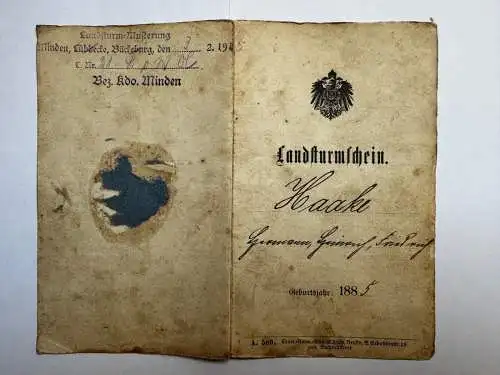 Landsturm-Musterung
Minden, Lübbecke, Bückeburg, den 3. 2. 191
C. Nr.
Bez. Kdo. Minden
Landsturmschein.
Haake
Hermann, Heinrich, Friedrich
Geburtsjahr: 1885